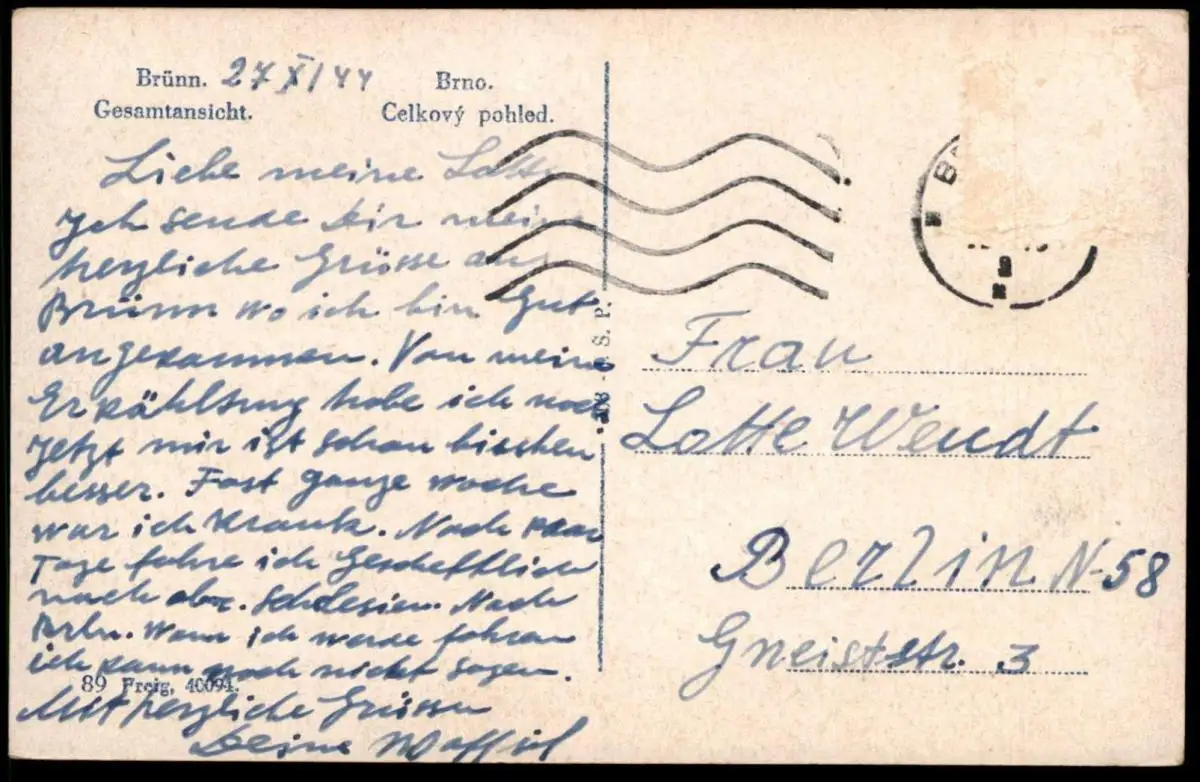 Brünn. 27 X/44 Brno.
Gesamtansicht. Celkový pohled.
Liebe meine Lotte
Ich sende Dir meine
herzliche Grüsse aus
Brünn wo ich bin Gut
angekammen. Von meine
Erkähltung habe ich noch
Jetzt mir ist schon bischen
besser. Fast ganze woche
war ich Krank. Nach paar
Tage fahre ich Gescheftlich
nach obr. Schlesien. Nach
Brln. Wann ich werde fahren
ich kann noch nicht sagen.
89 Freig. 40094.
Mit herzliche Grüssen
Deine
S. P.
Frau
Lotte Wendt
Berlin N-58
Gneiststr. 3